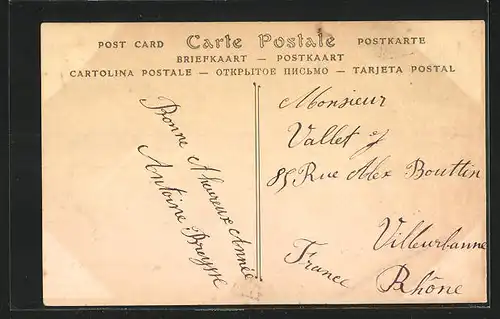 POST CARD Carte Postale POSTKARTE
BRIEFKAART — POSTKAART
CARTOLINA POSTALE — ОТКРЫТОЕ ПИСЬМО — TARJETA POSTAL
Bonne & heureux Année
Antoine Breysse
Monsieur
Vallet J
85 Rue Alex Bouttin
Villeurbanne
France Rhône